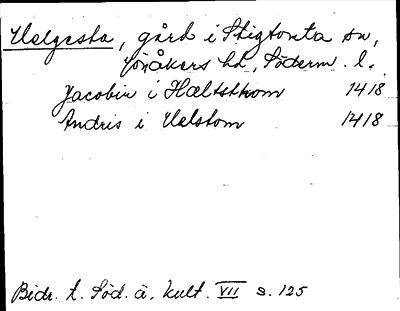 Helgesta, gård i Stigtomta sn,
Jönåkers hd, Söderm. l.
Jacobin i Hæltstom 1418
Andris i Helstom 1418
Bidr. t. Söd. ä. kult. VII s. 125